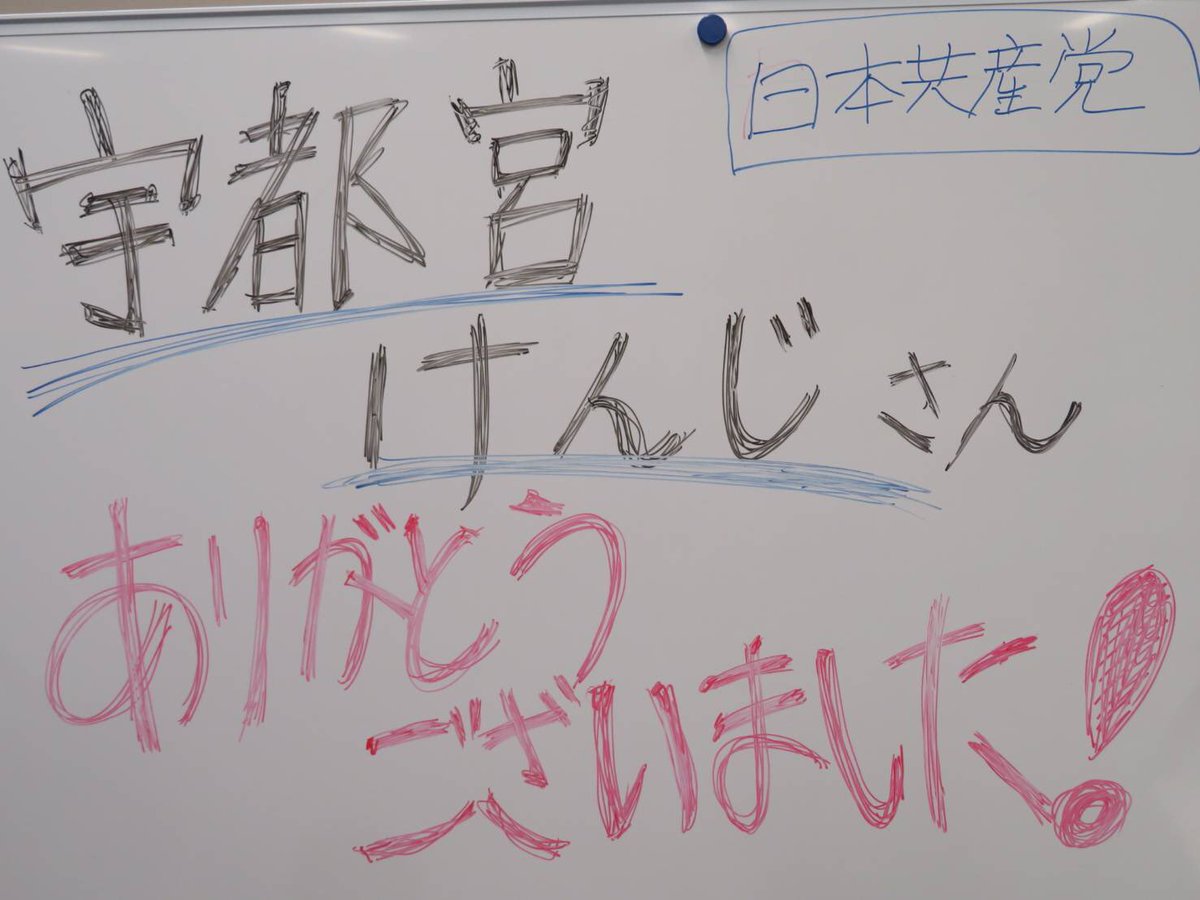 日本共産党
宇都宮
けんじさん
ありがとう
ございました!